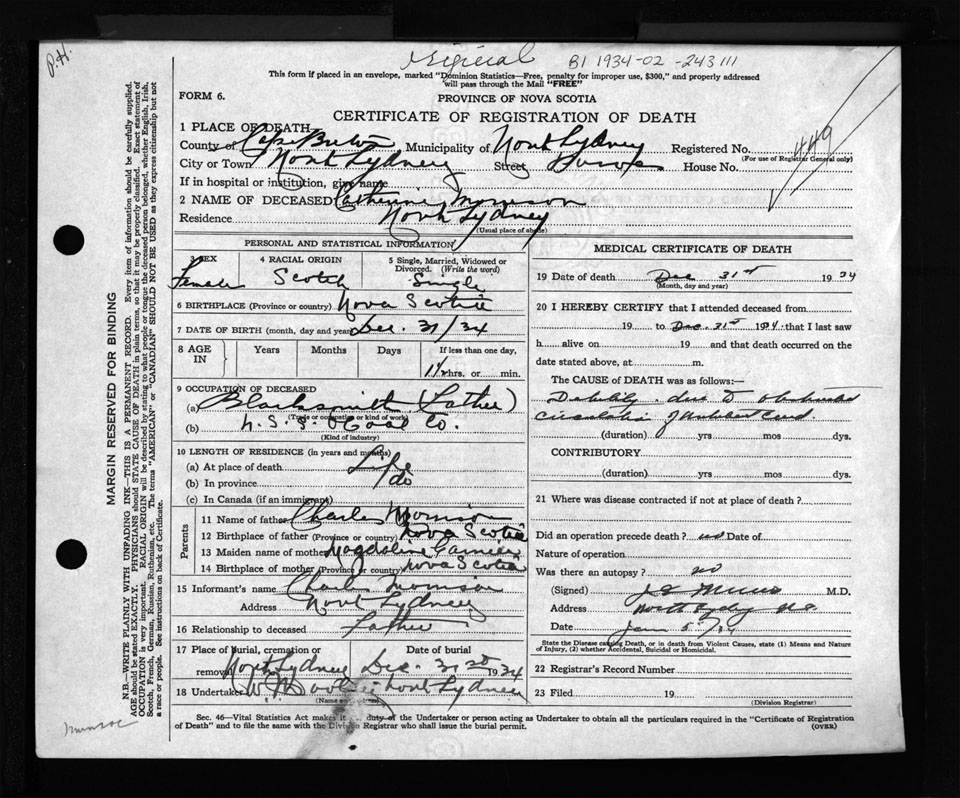 P.H.
Original B1 1934-02-243111
This form if placed in an envelope, marked "Dominion Statistics—Free, penalty for improper use, $300," and properly addressed
will pass through the Mail "FREE"
FORM 6.
PROVINCE OF NOVA SCOTIA
CERTIFICATE OF REGISTRATION OF DEATH
449
1 PLACE OF DEATH
County of Cape Breton Municipality of North Sydney Registered No.
(For use of Registrar General only)
City or Town North Sydney Street House No.
If in hospital or institution, give name
2 NAME OF DECEASED Catherine Morrison
Residence North Sydney
(Usual place of abode)
PERSONAL AND STATISTICAL INFORMATION
3 SEX Female
4 RACIAL ORIGIN Scotch
5 Single, Married, Widowed or Divorced. (Write the word) Single
6 BIRTHPLACE (Province or country) Nova Scotia
7 DATE OF BIRTH (month, day and year) Dec. 31/34
8 AGE IN Years Months Days If less than one day, 1½ hrs. or min.
9 OCCUPATION OF DECEASED
(a) Blacksmith (Father)
(Trade or occupation or kind of work)
(b) N.S.S. & Coal Co.
(Kind of industry)
10 LENGTH OF RESIDENCE (in years and months)
(a) At place of death Life
(b) In province do
(c) In Canada (if an immigrant)
Parents
11 Name of father Charles Morrison
12 Birthplace of father (Province or country) Nova Scotia
13 Maiden name of mother Magdaline
14 Birthplace of mother (Province or country) Nova Scotia
15 Informant's name Charles Morrison
Address North Sydney
16 Relationship to deceased Father
17 Place of burial, cremation or removal Date of burial
North Sydney Dec. 31st 1934
18 Undertaker North Sydney
(Name and address)
MEDICAL CERTIFICATE OF DEATH
19 Date of death Dec 31st 1934
(Month, day and year)
20 I HEREBY CERTIFY that I attended deceased from
19 to Dec. 31st 1934 that I last saw
h alive on 19 and that death occurred on the
date stated above, at m.
The CAUSE of DEATH was as follows:—
Debility due to obstructed
circulation of umbilical cord
(duration) yrs mos dys.
CONTRIBUTORY
(duration) yrs mos dys.
21 Where was disease contracted if not at place of death?
Did an operation precede death? no Date of
Nature of operation
Was there an autopsy? no
(Signed) M.D.
Address North Sydney N.S.
Date Jan 5th/34
State the Disease causing Death, or in death from Violent Causes, state (1) Means and Nature
of Injury, (2) whether Accidental, Suicidal or Homicidal.
22 Registrar's Record Number
23 Filed 19
(Division Registrar)
Sec. 46—Vital Statistics Act makes it duty of the Undertaker or person acting as Undertaker to obtain all the particulars required in the "Certificate of Registration
of Death" and to file the same with the Division Registrar who shall issue the burial permit.
(OVER)
MARGIN RESERVED FOR BINDING
N.B.—WRITE PLAINLY WITH UNFADING INK—THIS IS A PERMANENT RECORD. Every item of information should be carefully supplied.
AGE should be stated EXACTLY. PHYSICIANS should STATE CAUSE OF DEATH in plain terms, so that it may be properly classified. Exact statement of
OCCUPATION is very important. RACIAL ORIGIN will be described by stating to what people or tongue the deceased person belonged, whether English, Irish,
Scotch, French, German, Russian, Ruthenian, etc. The terms "AMERICAN" or "CANADIAN" SHOULD NOT BE USED as they express citizenship but not
a race or people. See instructions on back of Certificate.
Munroe